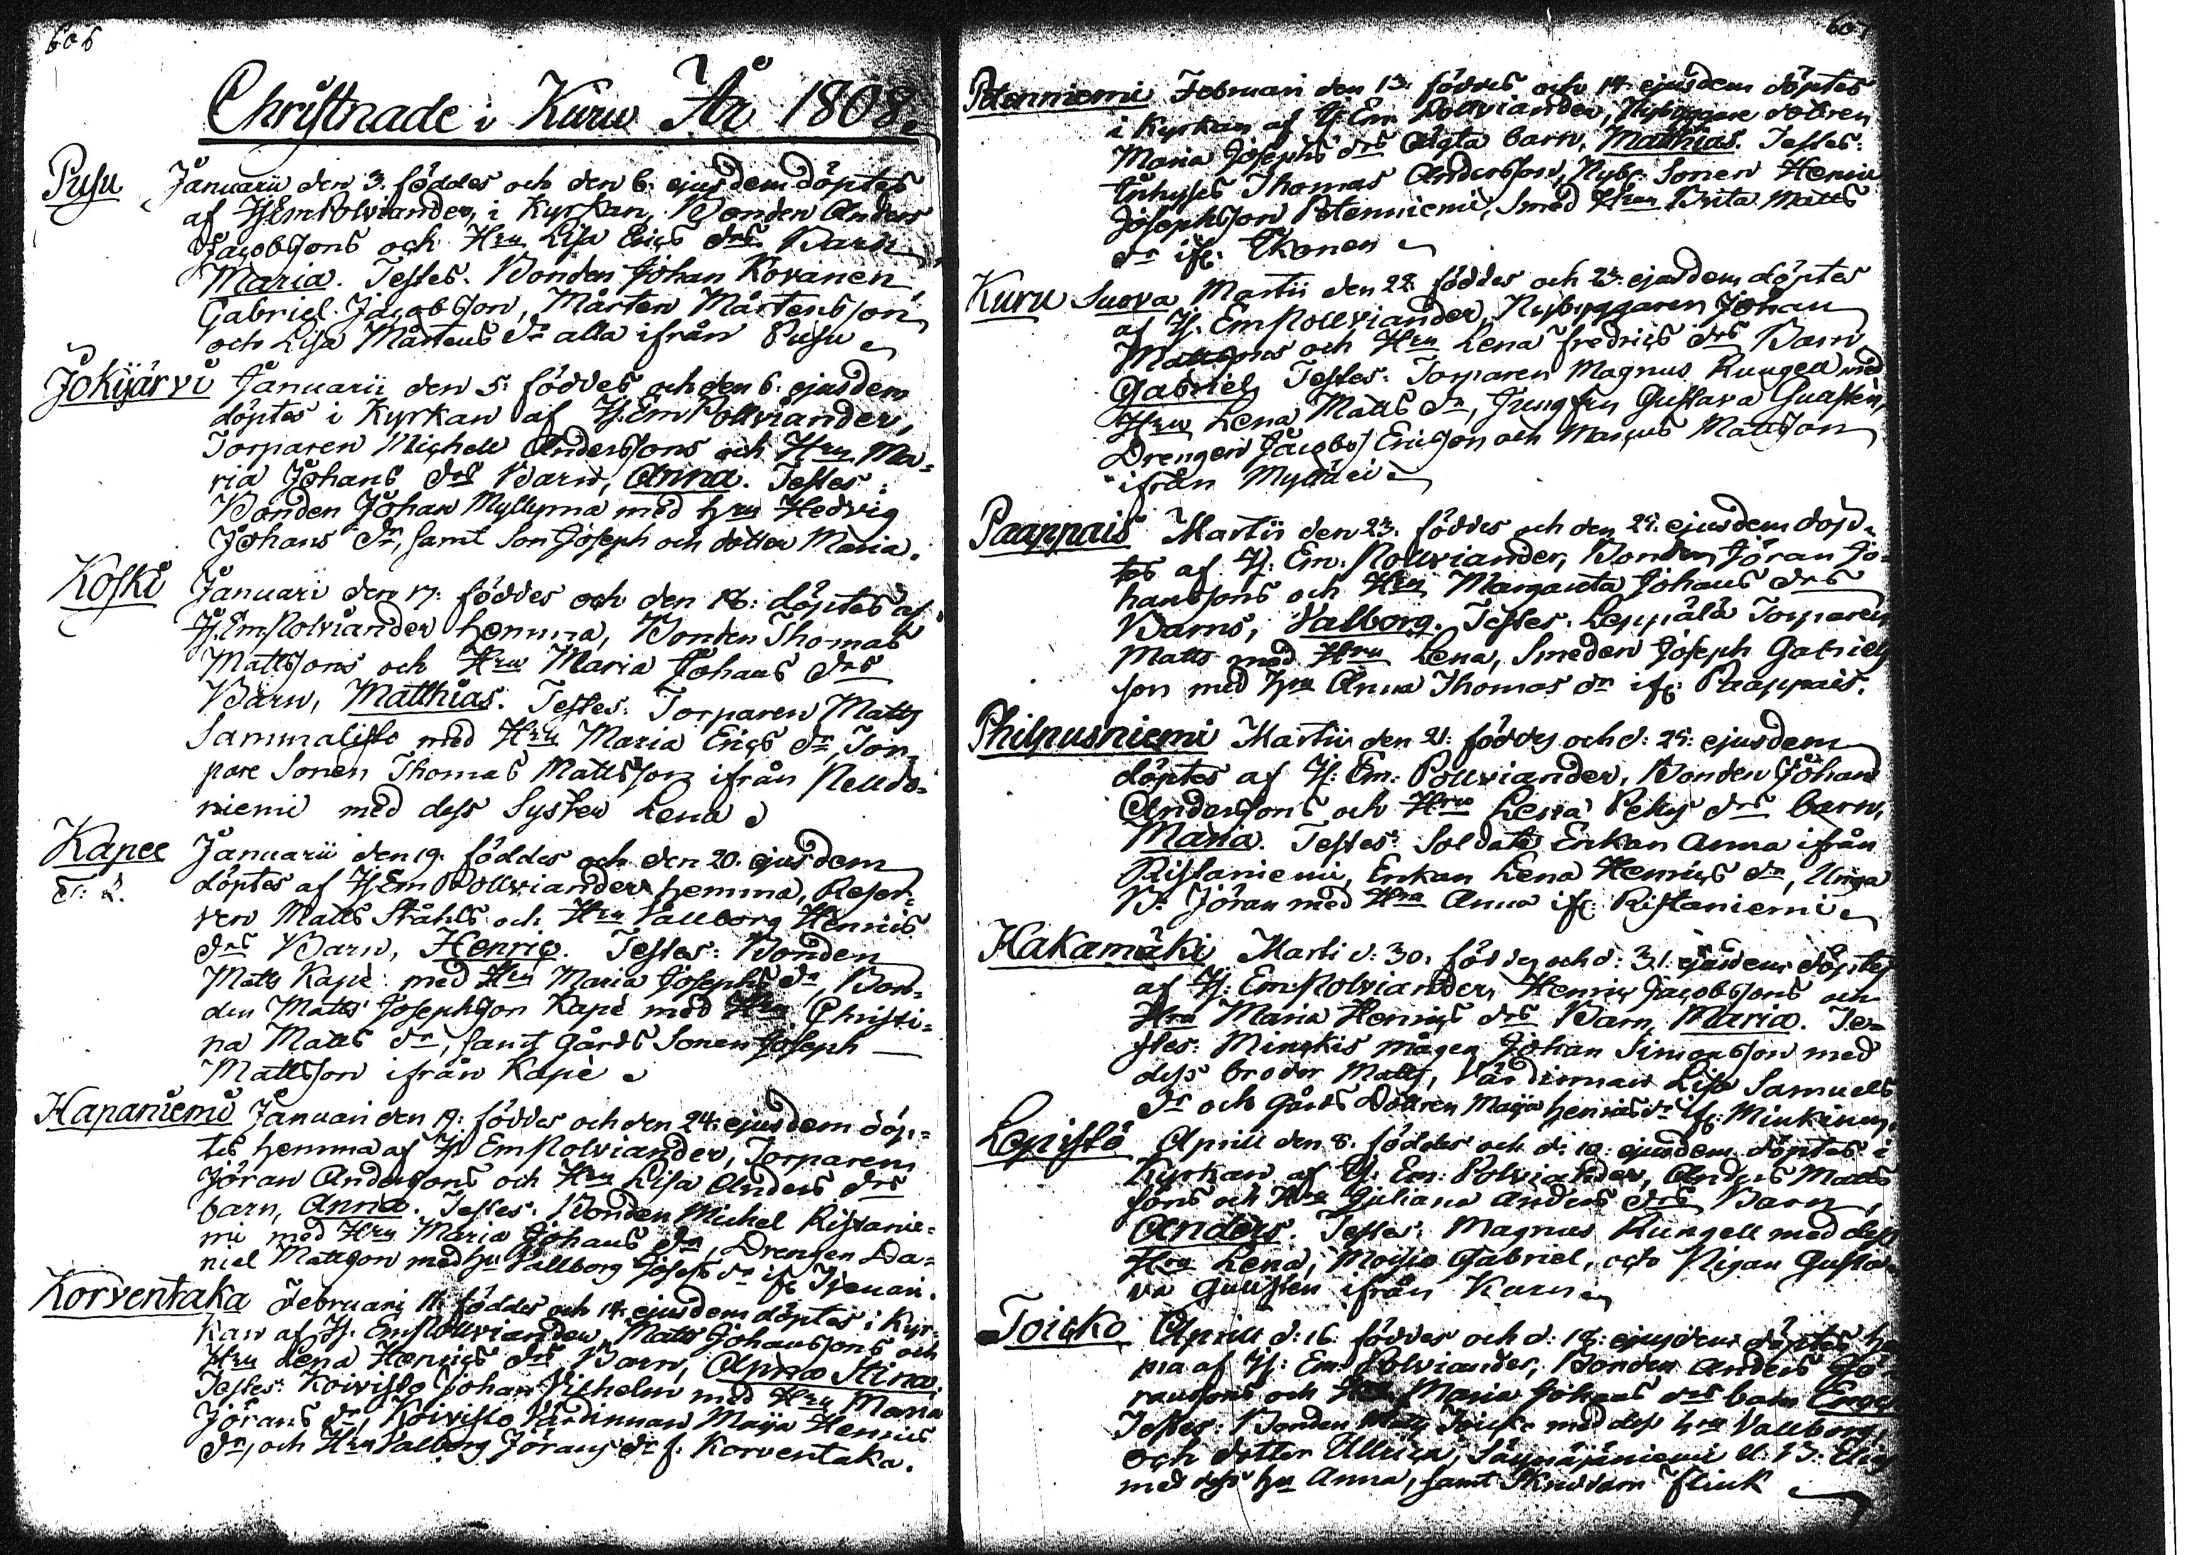 606
Christnade i Kuru År 1808.
Pusu Januarii den 3. föddes och den 6. ejusdem döptes
af H: Em Polviander, i Kyrkan, Bonden Anders
Jacobssons och Hru Lisa Erics drs Barn
Maria. Testes. Bonden Johan Kovanen,
Gabriel Jacobsson, Mårten Mårtensson
och Lisa Mårtens dr alla ifrån Pusu
Jokijärvi Januarii den 5. föddes och den 6. ejusdem
döptes i Kyrkan af H: Em Pollviander,
Torparen Michell Anderssons och Hru Ma=
ria Johans drs Barn, Anna. Testes:
Bonden Johan Myllymä med hru Hedvig
Johans dr, samt Son Joseph och dotter Maria.
Koski Januari den 17. föddes och den 18: döptes af
H: Em Polviander hemma, Bonden Thomas
Mattssons och Hru Maria Johans drs
Barn, Matthias. Testes: Torparen Matts
Sammalisto med Hru Maria Erics dr, Tor,
pare Sonen Thomas Mattsson ifrån
niemi med dess Syster Lena
Kapee Januarii den 19. föddes och den 20. ejusdem
döptes af H: Em Pollviander hemma, Reser=
ven Matts Ståhls och Hru Vallborg Henrics
drs Barn, Henric. Testes: Bonden
Matts Kapé med Hru Maria Josephs dr, Bon=
den Matts Josephsson Kapé med Hru Christi=
na Matts dr, samt gårds Sonen Joseph
Mattsson ifrån Kapé
Hapaniemi Januari den 19. föddes och den 24. ejusdem döp=
tes hemma af H: Em Polviander, Torparen
Jöran Anderssons och Hru Lisa Anders drs
barn, Anna. Testes. Bonden Michel Ristanie=
mi med Hru Maria Johans dr, Drengen Da=
niel Mattsson med hu Vallborg Josefs dr ifr
Korventaka Februarij 11. föddes och 14. ejusdem döptes i Kyr=
kan af H: Em Pollviander, Matts Johanssons och
Hru Lena Henrics drs Barn, Anna Stina.
Testes: Koivisto Johan Vilhelm med Hru Maria
Jörans dr, Koivisto Värdinnan Maija Henrics
dr, och Hru Valborg Jörans dr f. Korventaka.
607
Petenniemi Februari den 13. föddes och 14. ejusdem döptes
i Kyrkan af H: Em Pollviander, Nybyggare dottren
Maria Josephs drs Oägta barn, Matthias. Testes:
Inhyses Thomas Andersson, Nybr. Sonen Henric
Josephsson Petenniemi, Smed Hrun Brita Matts
dr ifr: Ikonen
Kuru Suova Martii den 22. föddes och 23. ejusdem döptes
af H. Em Pollviander, Nybyggaren Johan
Mattssons och Hru Lena Fredrics drs Barn
Gabriel. Testes: Torparen Magnus Rungell med
Hru Lena Matts dr, Jungfru Gustava Guasten,
Drengen Jacob Ericsson och Marcus Mattsson
ifrån
Paappais Martii den 23. föddes och den 25. ejusdem döp=
tes af H: Em: Pollviander, Bonden Jöran Jo=
hanssons och Hru Margareta Johans drs
Barns, Valborg. Testes. Leppälä Torparen
Matts med Hru Lena, Smeden Joseph Gabriels
son med hru Anna Thomas dr ifr: Paappais.
Philpusniemi Martii den 21. föddes och d: 25: ejusdem
döptes af H: Em: Pollviander, Bonden Johan
Anderssons och Hru Lena drs barn,
Maria. Testes: Soldats Enkan Anna ifrån
Ristaniemi, Enkan Lena Henrics dr, Unga
B. Jöran med Hru Anna ifr: Ristaniemi
Hakamäki Marti d: 30. föddes och d: 31. ejusdem döptes
af H: Em Polviander, Henric Jacobssons och
Hru Maria Henrics drs Barn, Maria. Te=
stes: Minckis mågen Johan Simonsson med
dess broder Matts, Värdinnan Lisa Samuels
dr och gårds dottren Maija Henrics dr ifr: Minkinen,
Lepistö Aprill den 8. föddes och d: 10: ejusdem döptes i
Kyrkan af H: Em: Polviander, Anders Matts
sons och Hru Juliana Anders drs Barn,
Anders. Testes: Magnus Rungell med dess
Hru Lena, Gabriel, och Pigan Gusta=
va Guusten ifrån Kuru
Toicko Aprill d: 16. föddes och d: 18: ejusdem döptes he
ma af H: Em: Polviander, Bonden Anders Jö=
ranssons och Hru Maria Johans drs barn
Testes: Bonden Matts med dess hru Vallborg,
och dotter Ullrica,
med dess hru Anna, samt Flink